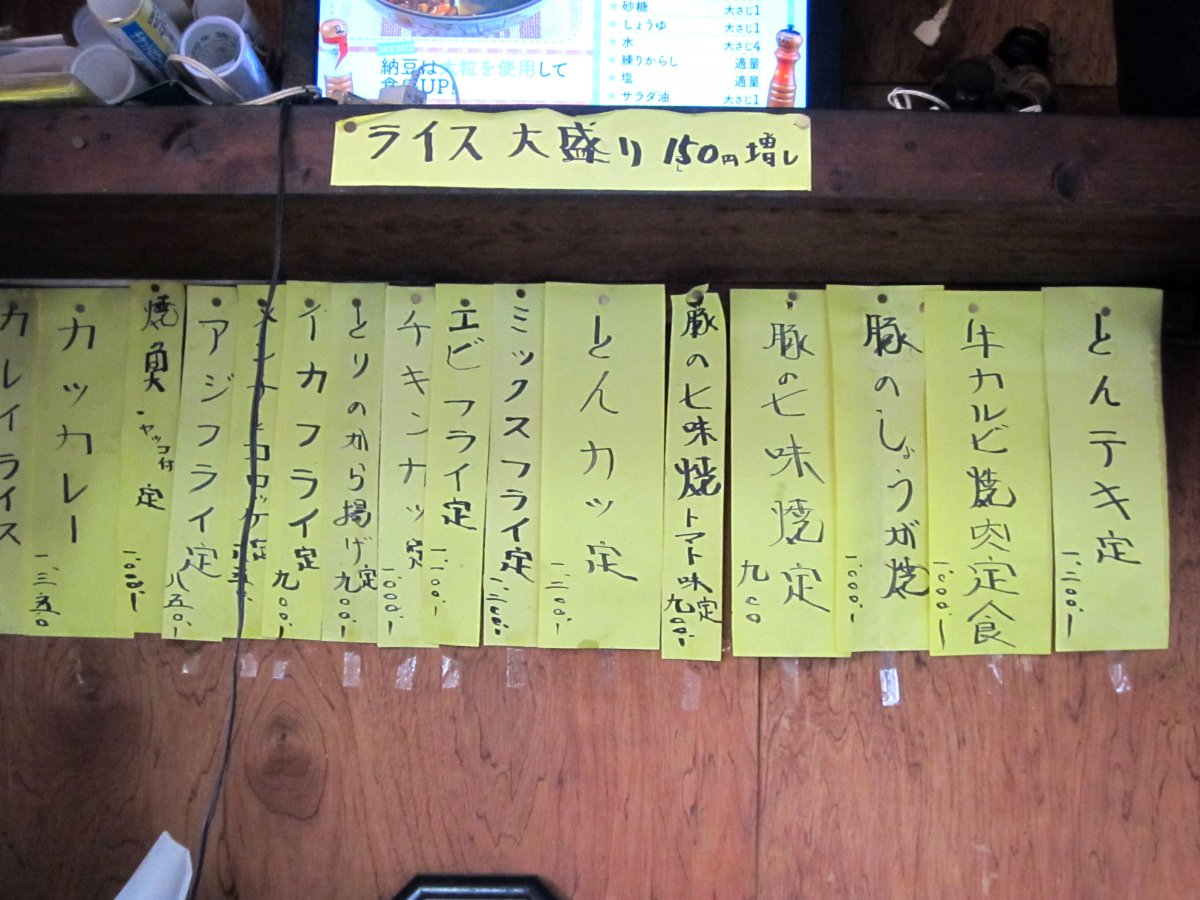 砂糖 大さじ1
しょうゆ 大さじ1
水 大さじ4
練りからし 適量
塩 適量
サラダ油 大さじ1
納豆は大粒を使用して
UP!
ライス大盛り 150円増し
とんテキ定 一、二〇〇、
牛カルビ焼肉定食 一、〇〇〇、
豚のしょうが焼 一、〇〇〇、
豚の七味焼定 九〇〇
豚の七味焼トマト味定 九〇〇、
とんカツ定 一、二〇〇、
ミックスフライ定 一、二〇〇、
エビフライ定 一、一〇〇、
チキンカツ定 一、〇〇〇、
とりのから揚げ定 九〇〇、
イカフライ定 九〇〇、
コロッケ定
アジフライ定 八五〇、
焼魚 ヤッコ付 定 一、〇〇〇、
カツカレー 一、三五〇
カレイライス